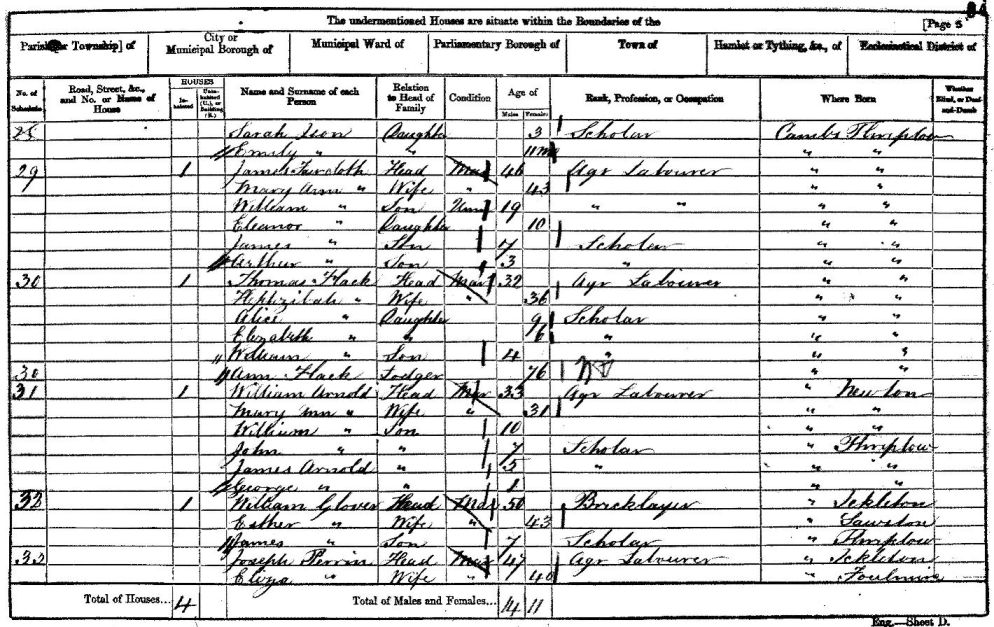 84
The undermentioned Houses are situate within the Boundaries of the
[Page 5
Parish [or Township] of City or Municipal Borough of Municipal Ward of Parliamentary Borough of Town of Hamlet or Tything, &c., of Ecclesiastical District of
No. of Schedule Road, Street, &c., and No. or Name of House HOUSES Inhabited Uninhabited (U.), or Building (B.) Name and Surname of each Person Relation to Head of Family Condition Age of Males Females Rank, Profession, or Occupation Where Born Whether Blind, or Deaf-and-Dumb
Sarah Ison Daughter 3 Scholar Cambs Thriplow
Emily " " 11 mo " "
29 1 James Faircloth Head Mar 46 Agr Labourer " "
Mary Ann " Wife " 43 " "
William " Son Unm 19 " " " "
Eleanor " Daughter 10 " "
James " Son 7 Scholar " "
Arthur " Son 3 " " "
30 1 Thomas Flack Head Mar 32 Agr Labourer " "
Hephzibah " Wife " 36 " "
Alice " Daughter 9 Scholar " "
Elizabeth " " 6 " " "
William " Son 4 " " "
30 Ann Flack Lodger 76 " "
31 1 William Arnold Head Mar 33 Agr Labourer " Newton
Mary Ann " Wife " 31 " "
William " Son 10 " "
John " " 7 Scholar " Thriplow
James Arnold " 5 " " "
George " " 1 " "
32 1 William Glover Head Mar 50 Bricklayer " Ickleton
Esther " Wife " 43 " Sawston
James " Son 7 Scholar " Thriplow
33 Joseph Perrin Head Mar 47 Agr Labourer " Ickleton
Eliza " Wife " 40 " Foulmire
Total of Houses... 4 Total of Males and Females... 14 11
Eng.—Sheet D.